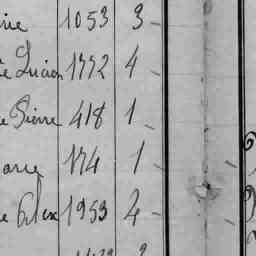 rie 1053 3
e Lucien 1772 4
e Pierre 418 1
174 1
e Alex 1953 4